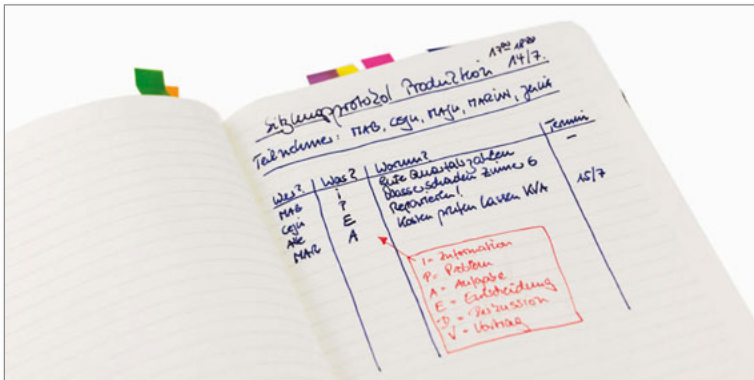 17⁰⁰-18⁰⁰
Sitzungsprotokol Produktion 14/7.
Teilnehmer: MAB, CEJU, MAJU, MARIN, JULIA
Wer? Was? Warum? Termin
MAB i gute Quartalszahlen –
CEJU P Wasserschaden Zimmer 6
Alle E Reparieren!
MAR A Kosten prüfen lassen KVA 15/7
I = Information
P = Problem
A = Aufgabe
E = Entscheidung
D = Diskussion
V = Vortrag